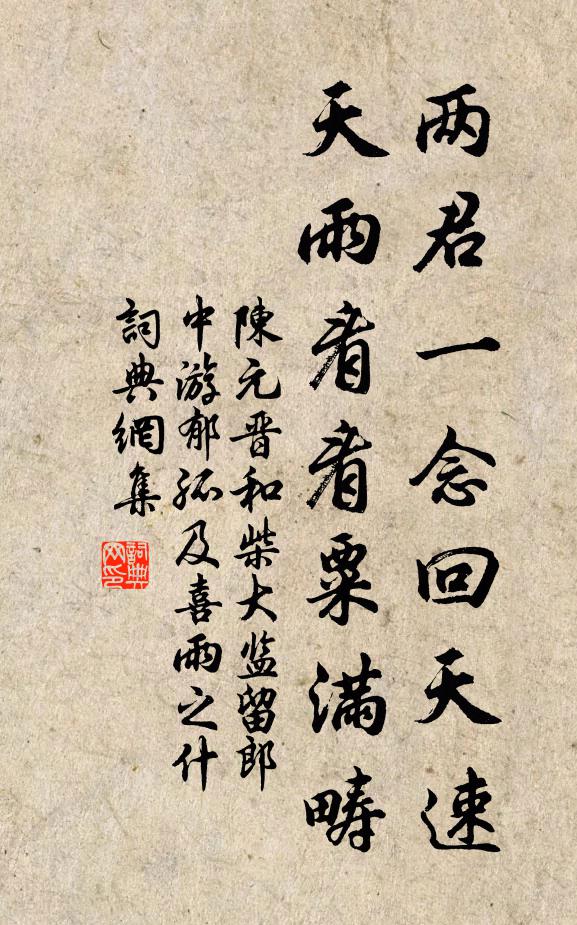 两君一念回天速
天雨看看粟满畴
陳元晋和柴大监留郎
中游郁孤及喜雨之什
詞典網集
詞典
网印